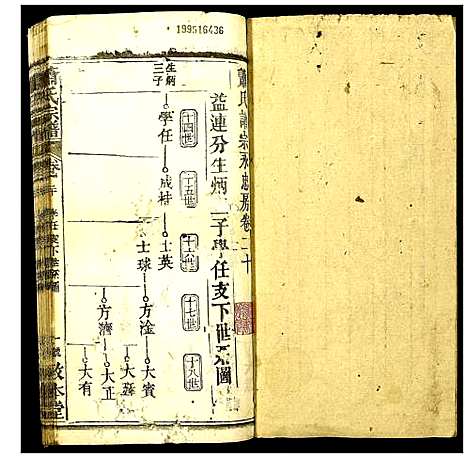 199516436
蕭氏譜宗永忠房卷二十
益連分生炳二子學任支下世系圖
生炳
三子
十四世
十五世
十六世
十七世
十八世
學任
成桂
士英
士球
方淦
方濟
大賓
大正
大有
蕭氏宗譜
卷二十
敦本堂